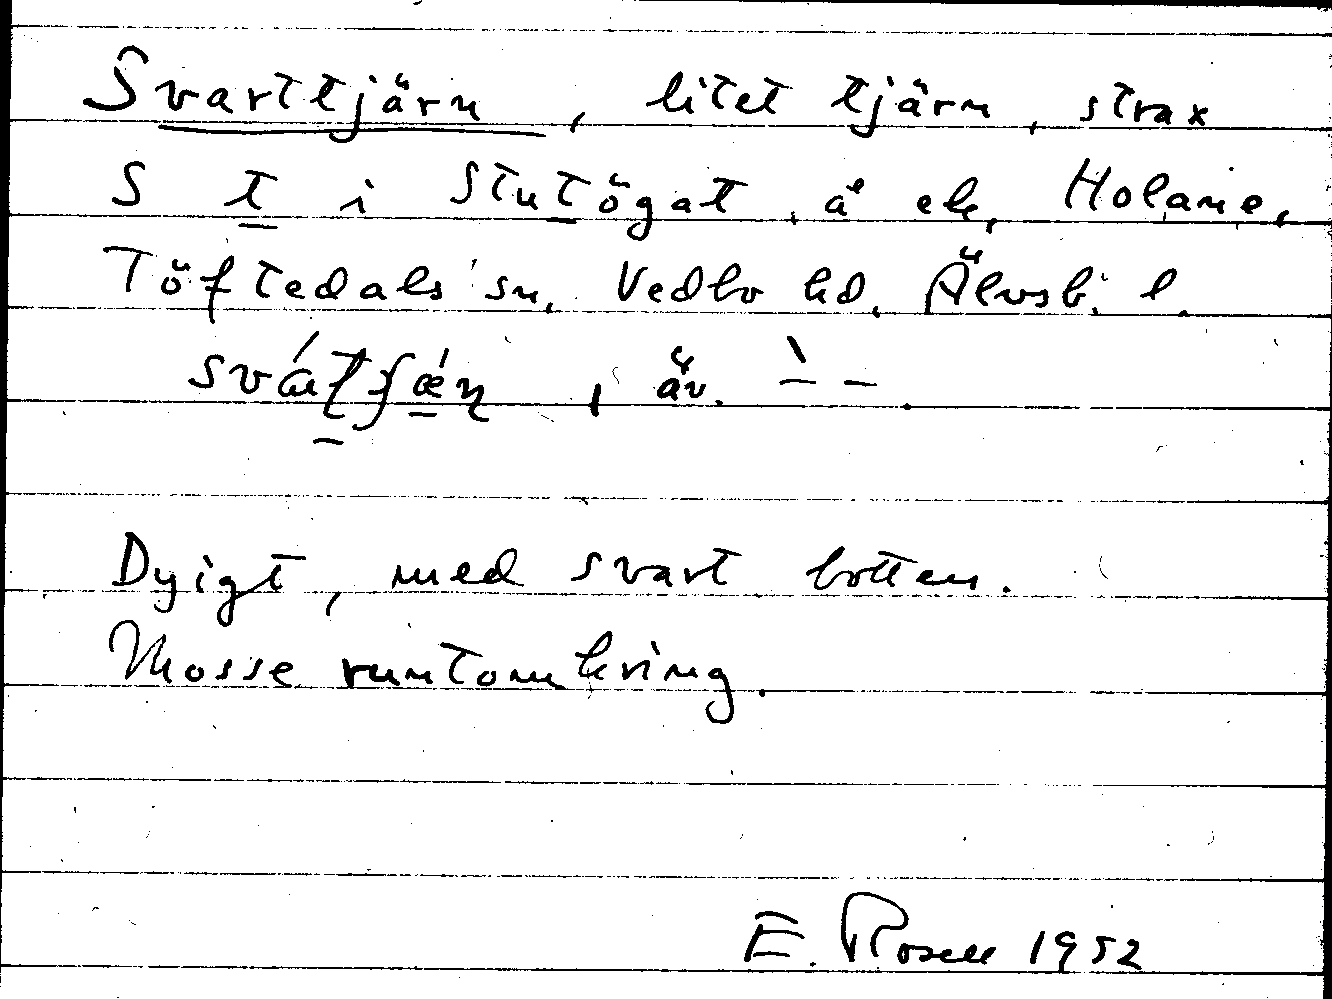 Svarttjärn, litet tjärn, strax
S t i Stutögat, å ek. Holane,
Töftedals sn, Vedbo hd, Älvsb. l.
, äv. ` – –.
Dyigt, med svart botten.
Mosse runtomkring.
E. Rosell 1952